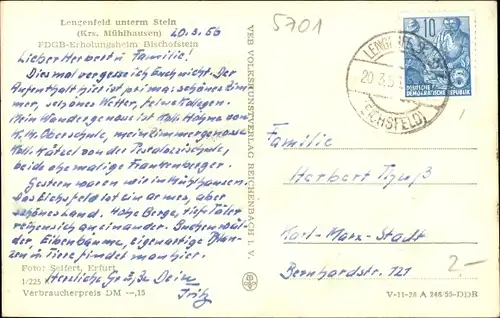 Lengenfeld unterm Stein
(Krs. Mühlhausen) 20.3.56
FDGB-Erholungsheim Bischofstein
Lieber Herbert u Familie!
Diesmal vergesse ich Euch nicht. Der
Aufenthalt hier ist prima: schönes Zim-
mer, schönes Wetter, feine Kollegen.
Mein Wandergenosse ist Koll. Hohme von
K.M. Oberschule, mein Zimmergenosse
Koll. Rätsel von der Pestalozzischule,
beide ehemalige Frankenberger.
Gestern waren wir in Mühlhausen.
Das Eichsfeld ist ein armes, aber
schönes Land. Hohe Berge, tiefe Täler
reihen sich aneinander. Buchenwäl-
der Eibenbäume, eigenartige Pflan-
zen u Tiere findet man hier.
Foto: Seifert, Erfurt
Herzliche Grüße Dein
1/225
Fritz
Verbraucherpreis DM —,15
VEB VOLKSKUNSTVERLAG REICHENBACH I. V.
5701
LENGENFELD
20.3.5
(EICHSFELD)
10
DEUTSCHE
DEMOKRATISCHE REPUBLIK
Familie
Herbert
Karl-Marx-Stadt
Bernhardstr. 121
2.-
V-11-28 A 246/55-DDR